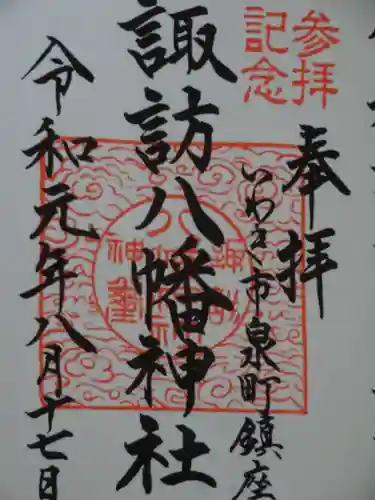 参拝
記念
奉拝
いわき市泉町鎮座
諏訪八幡神社
令和元年八月十七日